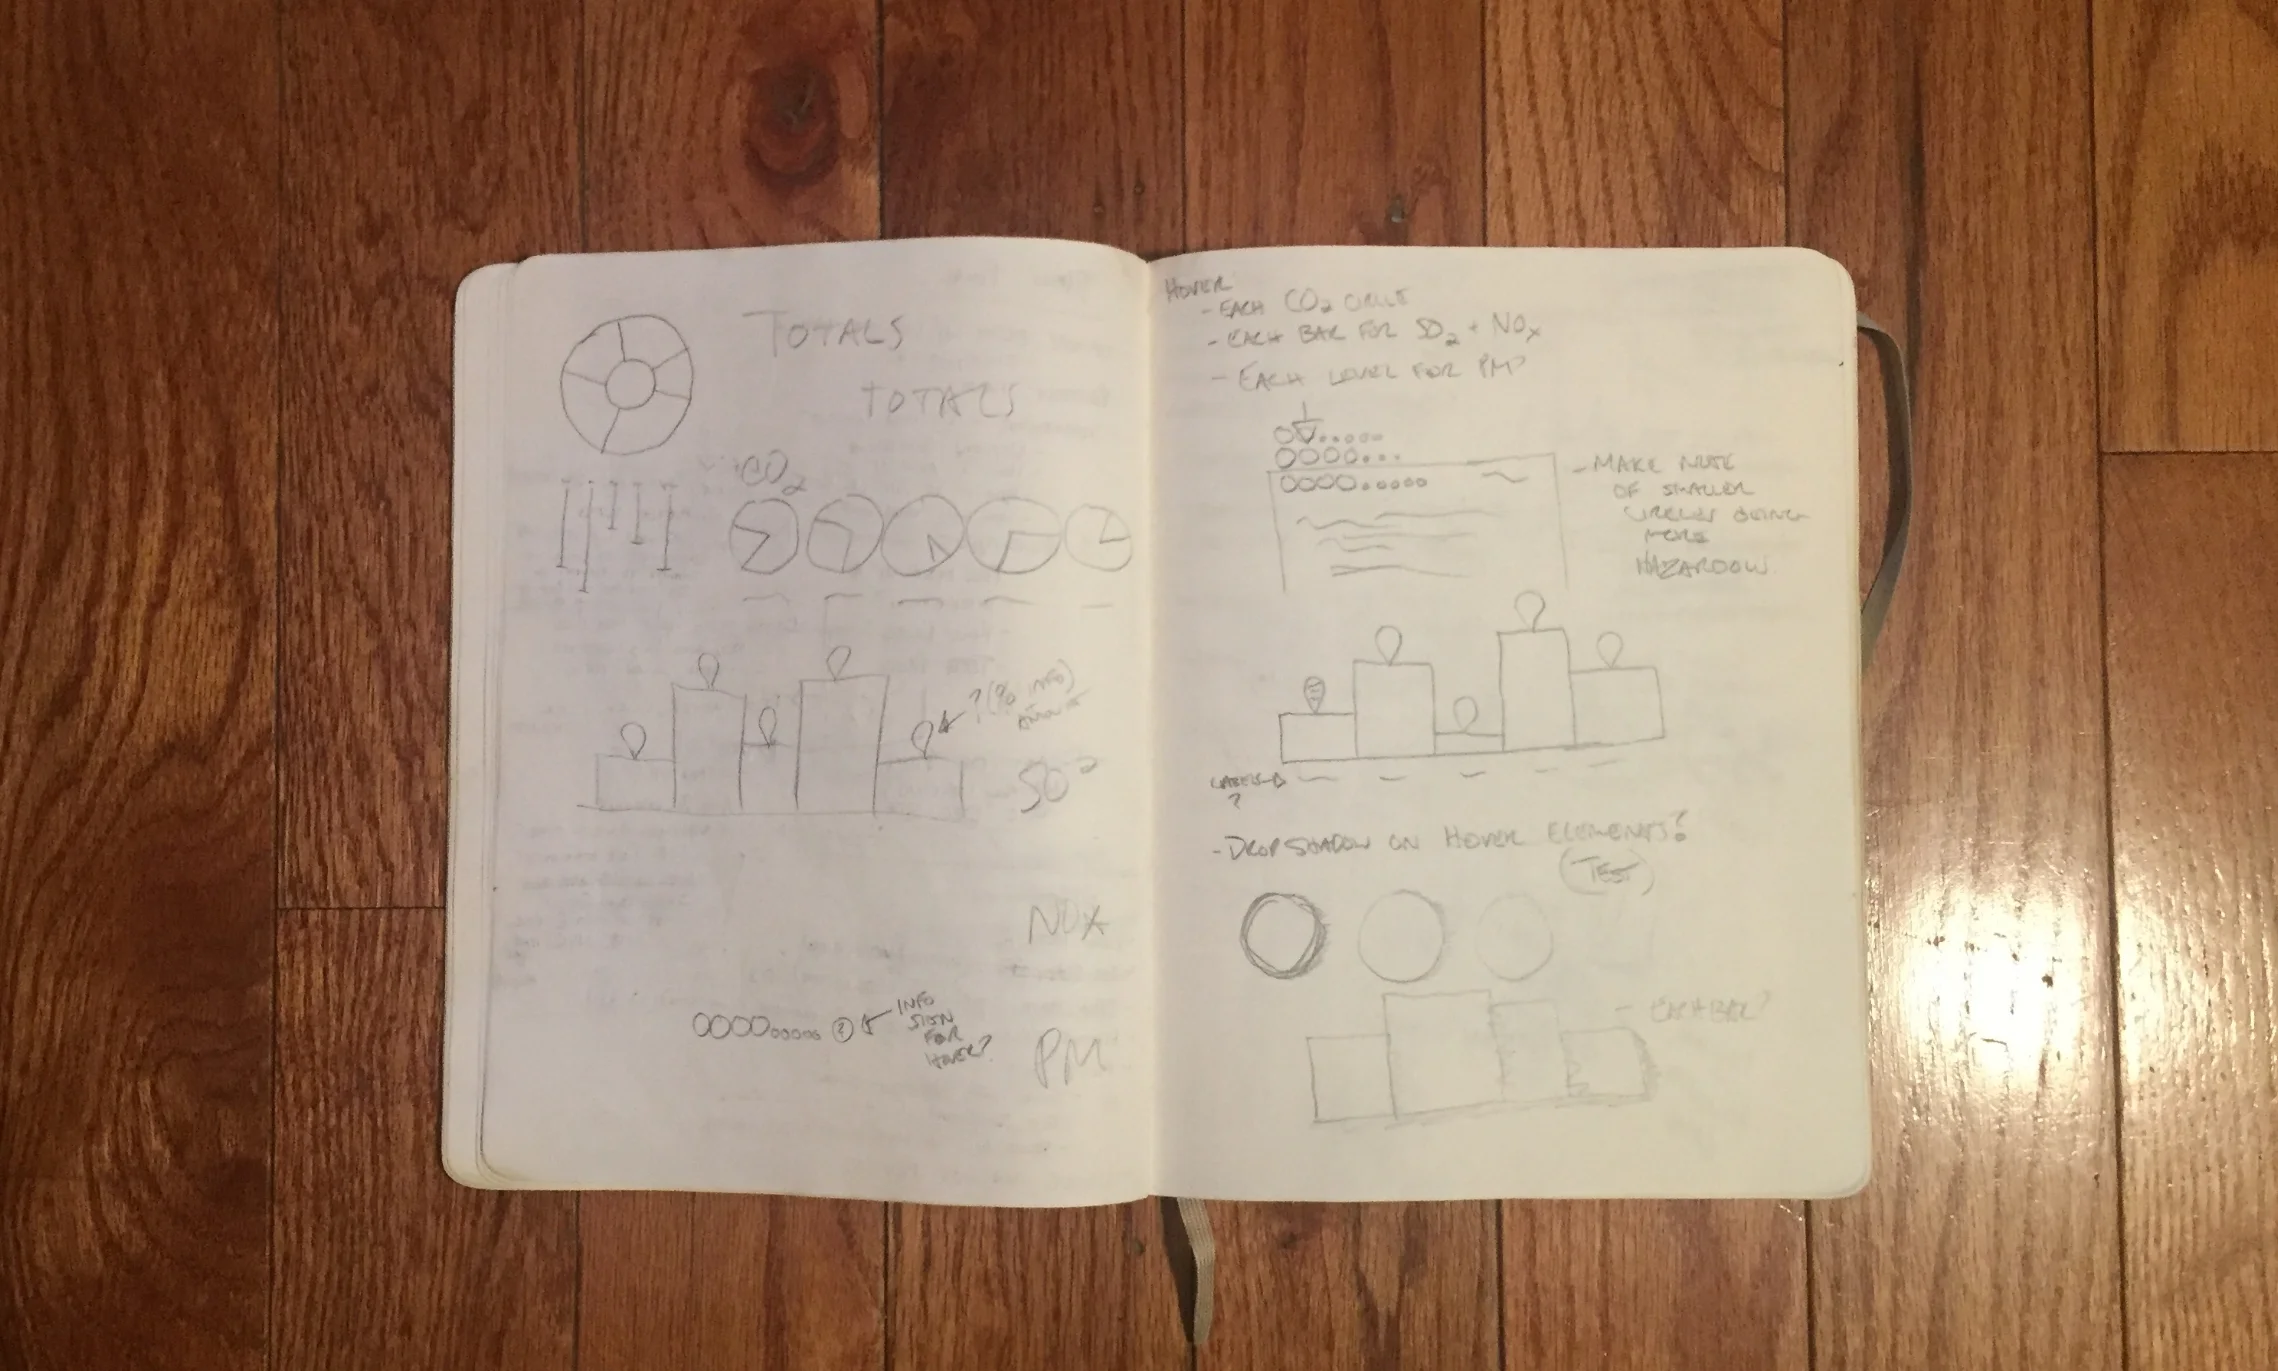 TOTALS
TOTALS
CO2
? (% INFO)
SO2
NOX
INFO
SIGN
FOR
HOVER?
PM
HOVER
- EACH CO2 CIRCLE
- EACH BAR FOR SO2 + NOX
- EACH LEVEL FOR PM?
- MAKE NOTE
OF SMALLER
CIRCLES BEING
MORE
HAZARDOUS
LABELS
?
- DROP SHADOW ON HOVER ELEMENTS?
(TEST)
- EACH BAR?